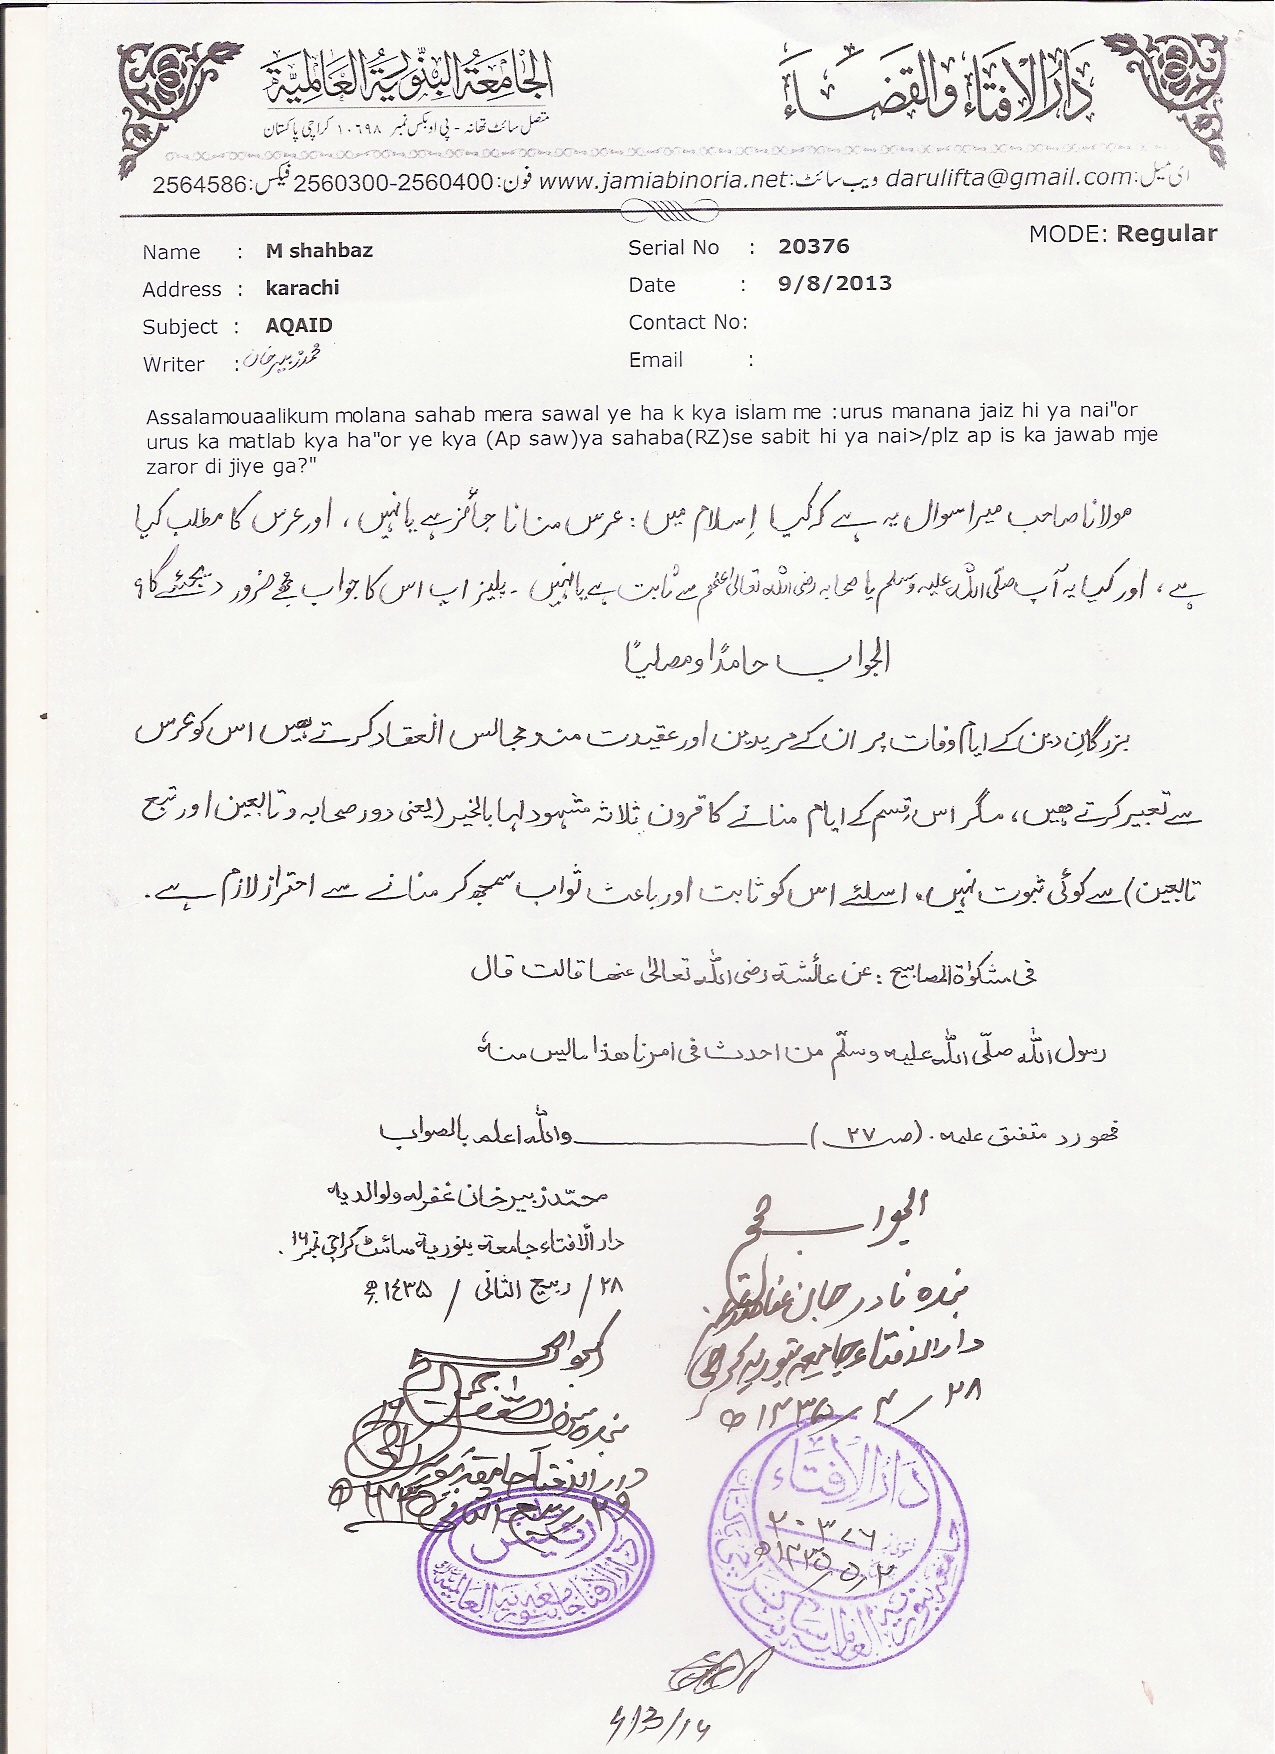 دَارُ الْإفتَاء وَالقضَاء
الجَامعَةُ البنّوریَّة العَالمیَّة
متصل سائٹ تھانہ - پی او بکس نمبر ۱۰٦۹۸ کراچی پاکستان
ای میل: darulifta@gmail.com ویب سائٹ: www.jamiabinoria.net فون: 2560300-2560400 فیکس: 2564586
MODE: Regular
Name : M shahbaz Serial No : 20376
Address : karachi Date : 9/8/2013
Subject : AQAID Contact No:
Writer : محمد زبیر خان Email :
Assalamouaalikum molana sahab mera sawal ye ha k kya islam me :urus manana jaiz hi ya nai"or
urus ka matlab kya ha"or ye kya (Ap saw)ya sahaba(RZ)se sabit hi ya nai>/plz ap is ka jawab mje
zaror di jiye ga?"
مولانا صاحب میرا سوال یہ ہے کہ کیا اِسلام میں : عرس منانا جائز ہے یا نہیں ، اور عرس کا مطلب کیا
ہے ، اور کیا یہ آپ صلّی اللہ علیہ وسلم یا صحابہ رضی اللہ تعالیٰ عنھم سے ثابت ہے یا نہیں ۔ پلیز اپ اس کا جواب مجھے ضرور دیجئے گا ؟
الجواب حامدًا ومصلیًا
بزرگانِ دین کے ایامِ وفات پر ان کے مریدین اور عقیدت مند و مجالس انعقاد کرتے ہیں اس کو عرس
سے تعبیر کرتے ہیں ، مگر اس قِسم کے ایام منانے کا قرون ثلاثہ مشہود لہا بالخیر (یعنی دور صحابہ و تابعین اور تبع
تابعین) سے کوئی ثبوت نہیں ، اسلئے اس کو ثابت اور باعث ثواب سمجھ کر منانے سے احتراز لازم ہے .
فی مشکوٰۃ المصابیح : عن عائشة رضی اللہ تعالیٰ عنھا قالت قال
رسول اللہ صلّی اللہ علیہ وسلّم من احدث فی امرنا ھذا مالیس منہ
فھو رد متفق علیہ . (صـ ۲۷) واللہ اعلم بالصواب
محمّد زبیر خان غفرلہ ولوالدیہ
دار الافتاء جامعة بنوریة سائٹ کراچی نمبر ۱٦ .
۲۸ / ربیع الثانی / ۱٤۳۵ھ
الجواب صحیح
بندہ نادر جان
دار الافتاء جامعہ بنوریہ کراچی
۲۸ / ۴ / ۱۴۳۵ھ
الجواب صحیح
بندہ
دار الافتاء جامعہ بنوریہ
۲۹ ربیع الثانی ۱۴۳۵ھ
دَارُ الْإفتَاء
۲۰۳۷٦
۲ / ۵ / ۱۴۳۵ھ
رئیس
دار الافتاء جامعہ بنوریہ العالمیہ
4/3/14